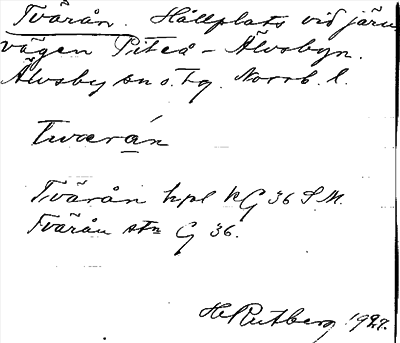 Tvärån. Hållplats vid järn
vägen Piteå - Älvsbyn.
Älvsby sn o. tg. Norrb. l.
tværán
Tvärån hpl kG 36 S.M.
Tvärån stn G 36.
H. Rutberg 1927.